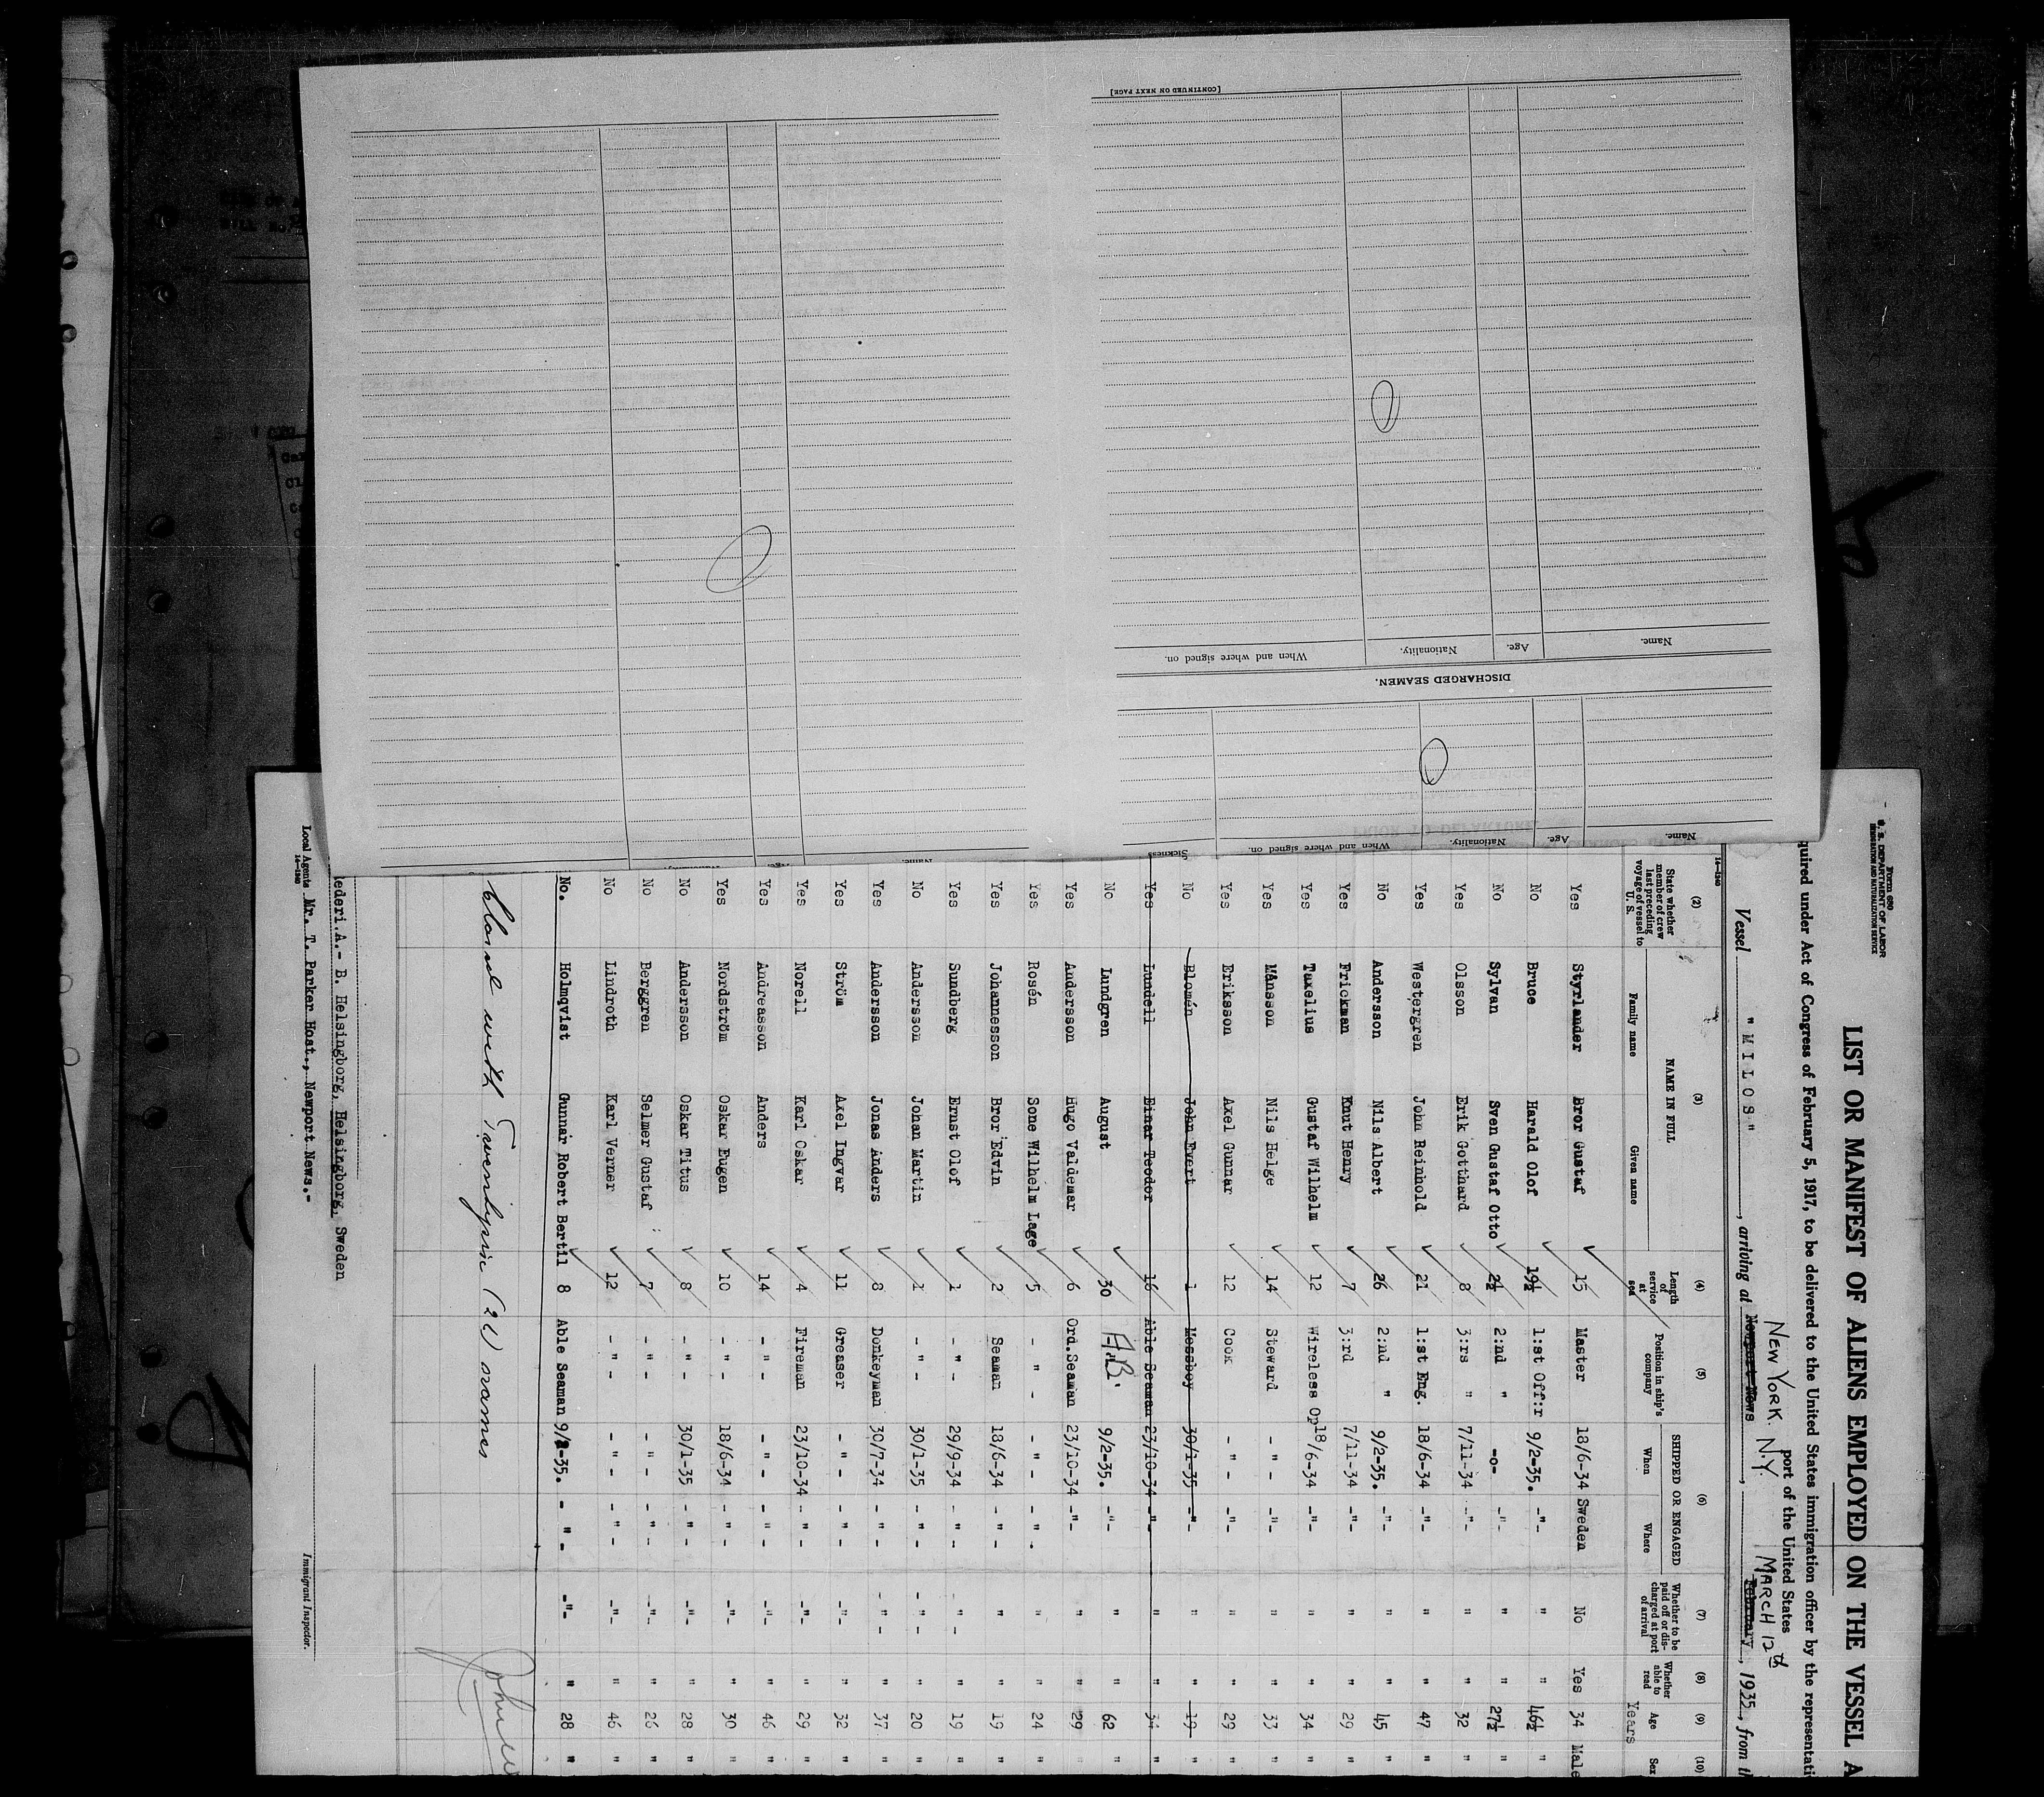 [CONTINUED ON NEXT PAGE]
Name. Age. Nationality. When and where signed on.
DISCHARGED SEAMEN.
Name. Age. Nationality. When and where signed on.
Form 680
U. S. DEPARTMENT OF LABOR
IMMIGRATION AND NATURALIZATION SERVICE
LIST OR MANIFEST OF ALIENS EMPLOYED ON THE VESSEL A
quired under Act of Congress of February 5, 1917, to be delivered to the United States immigration officer by the representati
NEW YORK N.Y. port of the United States MARCH 12th
Vessel "MILOS", arriving at Newport News, February, 1935, from th
14-1240
(2) (3) (4) (5) (6) (7) (8) (9) (10)
State whether member of crew last preceding voyage of vessel to U. S. NAME IN FULL Family name Given name Length of service at sea Position in ship's company SHIPPED OR ENGAGED When Where Whether to be paid off or discharged at port of arrival Whether able to read Age Sex
Years
Yes Styrlander Bror Gustaf 15 Master 18/6-34 Sweden No Yes 34 Male
No Bruce Harald Olof 19½ 1:st Off:r 9/2-35. -"- " " 46½ "
No Sylvan Sven Gustaf Otto 2½ 2:nd " -o- -"- " " 27½ "
Yes Olsson Erik Gotthard 8 3:rs " 7/11-34 -"- " " 32 "
Yes Westergren John Reinhold 21 1:st Eng. 18/6-34 -"- " " 47 "
No Andersson Nils Albert 26 2:nd " 9/2-35. -"- " " 45 "
Yes Frickman Knut Henry 7 3:rd 7/11-34 -"- " " 29 "
Yes Tuxelius Gustaf Wilhelm 12 Wireless Op 18/6-34 -"- " " 34 "
Yes Månsson Nils Helge 14 Steward - " - -"- " " 33 "
Yes Eriksson Axel Gunnar 12 Cook - " - -"- " " 29 "
No Blomén John Evert 1 Messboy 30/1-35 -"- " " 19 "
Yes Lundell Einar Teodor 16 Able Seaman 23/10-34 -"- " " 34 "
No Lundgren August 30 A.B. 9/2-35. -"- " " 62 "
Yes Andersson Hugo Valdemar 6 Ord.Seaman 23/10-34 -"- " " 29 "
Yes Rosén Sone Wilhelm Lage 5 - " - - " - - " - " " 24 "
Yes Johannesson Bror Edvin 2 Seaman 18/6-34 - " - " " 19 "
Yes Sundberg Ernst Olof 1 - " - 29/9-34 - " - - " - " 19 "
No Andersson Johan Martin 1 - " - 30/1-35 - " - - " - " 20 "
Yes Andersson Jonas Anders 8 Donkeyman 30/7-34 - " - - " - " 37 "
Yes Ström Axel Ingvar 11 Greaser - " - - " - -"- " 32 "
Yes Norell Karl Oskar 4 Fireman 23/10-34 - " - -"- " 29 "
Yes Andreasson Anders 14 - " - - " - - " - -"- " 46 "
Yes Nordström Oskar Eugen 10 - " - 18/6-34 - " - -"- " 30 "
No Andersson Oskar Titus 8 - " - 30/1-35 - " - -"- " 28 "
No Berggren Selmer Gustaf 7 - " - - " - - " - -"- " 26 "
No Lindroth Karl Verner 12 - " - - " - - " - -"- " 46 "
No. Holmqvist Gunnar Robert Bertil 8 Able Seaman 9/2-35. - " - -"- " 28 "
Closed with Twentyfive (25) names
ederi.A.- B. Helsingborg, Helsingborg, Sweden
Local Agents Mr. T. Parker Host., Newport News.-
14-1240
Immigrant Inspector.